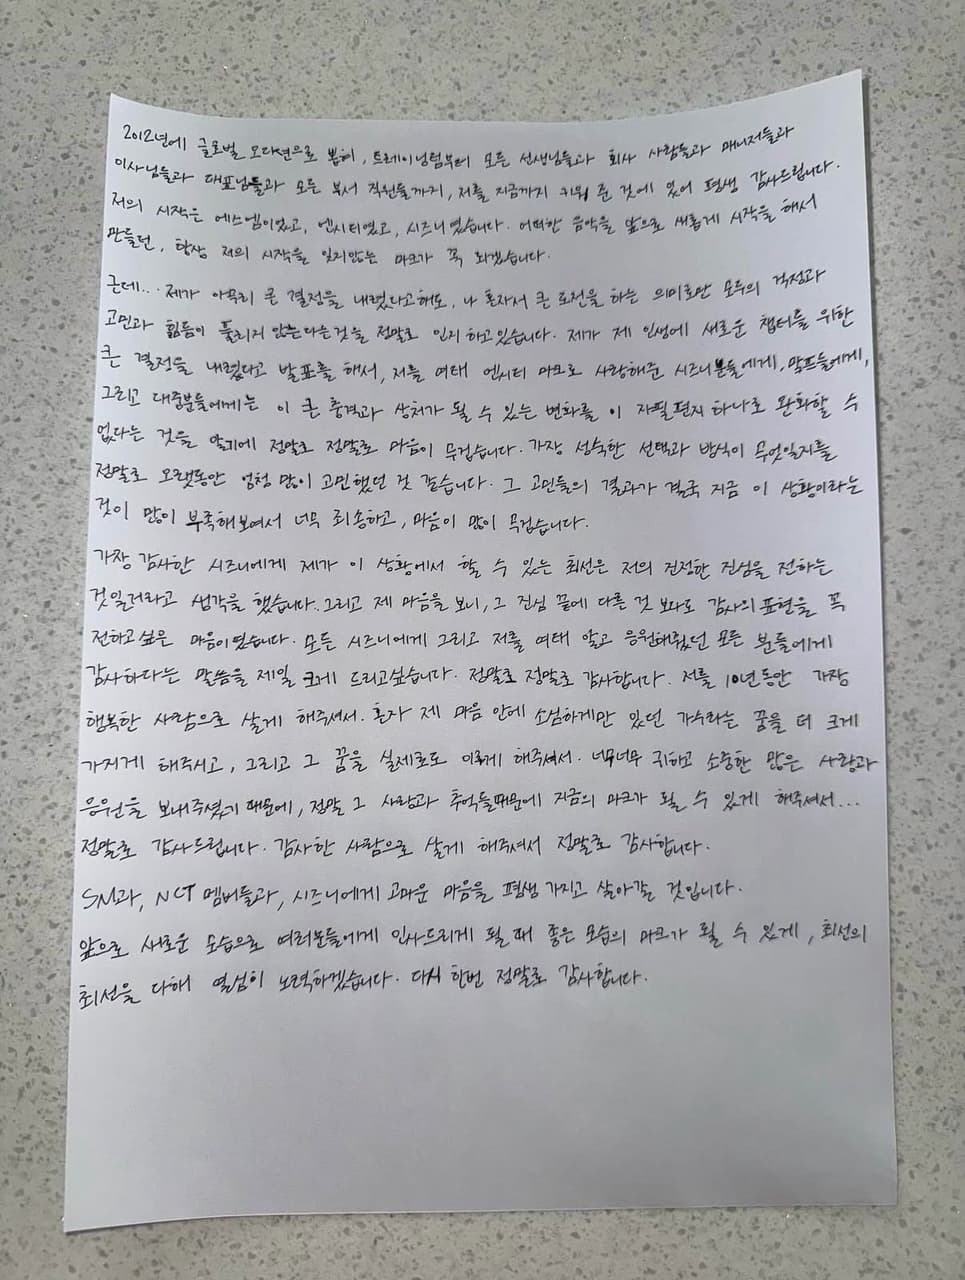 2012년에 글로벌 오디션으로 뽑혀, 트레이닝팀부터 모든 선생님들과 회사 사람들과 매니저들과
이사님들과 대표님들과 모든 부서 직원들까지, 저를 지금까지 키워 준 것에 있어 평생 감사드립니다.
저의 시작은 에스엠이었고, 엔시티였고, 시즈니였습니다. 어떠한 음악을 앞으로 새롭게 시작을 해서
만들던, 항상 저의 시작을 잊지않는 마크가 꼭 되겠습니다.
근데... 제가 아무리 큰 결정을 내렸다고해도, 나 혼자서 큰 도전을 하는 의미로만 모두의 걱정과
고민과 힘듦이 풀리지 않는다는것을 정말로 인지하고있습니다. 제가 제 인생에 새로운 챕터를 위한
큰 결정을 내렸다고 발표를 해서, 저를 여태 엔시티 마크로 사랑해준 시즈니분들에게, 맠프들에게,
그리고 대중분들에게는 이 큰 충격과 상처가 될 수 있는 변화를 이 자필편지 하나로 완화할 수
없다는 것을 알기에 정말로 정말로 마음이 무겁습니다. 가장 성숙한 선택과 방식이 무엇일지를
정말로 오랫동안 엄청 많이 고민했던 것 같습니다. 그 고민들의 결과가 결국 지금 이 상황이라는
것이 많이 부족해보여서 너무 죄송하고, 마음이 많이 무겁습니다.
가장 감사한 시즈니에게 제가 이 상황에서 할 수 있는 최선은 저의 진정한 진심을 전하는
것일거라고 생각을 했습니다. 그리고 제 마음을 보니, 그 진심 끝에 다른 것 보다도 감사의 표현을 꼭
전하고싶은 마음이였습니다. 모든 시즈니에게 그리고 저를 여태 알고 응원해줬던 모든 분들에게
감사하다는 말씀을 제일 크게 드리고싶습니다. 정말로 정말로 감사합니다. 저를 10년동안 가장
행복한 사람으로 살게 해주셔서. 혼자 제 마음 안에 소심하게만 있던 가수라는 꿈을 더 크게
가지게 해주시고, 그리고 그 꿈을 실제로도 이루게 해주셔서. 너무너무 귀하고 소중한 많은 사랑과
응원을 보내주셨기 때문에, 정말 그 사랑과 추억들때문에 지금의 마크가 될 수 있게 해주셔서...
정말로 감사드립니다. 감사한 사람으로 살게 해주셔서 정말로 감사합니다.
SM과, NCT 멤버들과, 시즈니에게 고마운 마음을 평생 가지고 살아갈 것입니다.
앞으로 새로운 모습으로 여러분들에게 인사드리게 될 때 좋은 모습의 마크가 될 수 있게, 최선의
최선을 다해 열심히 노력하겠습니다. 다시 한번 정말로 감사합니다.